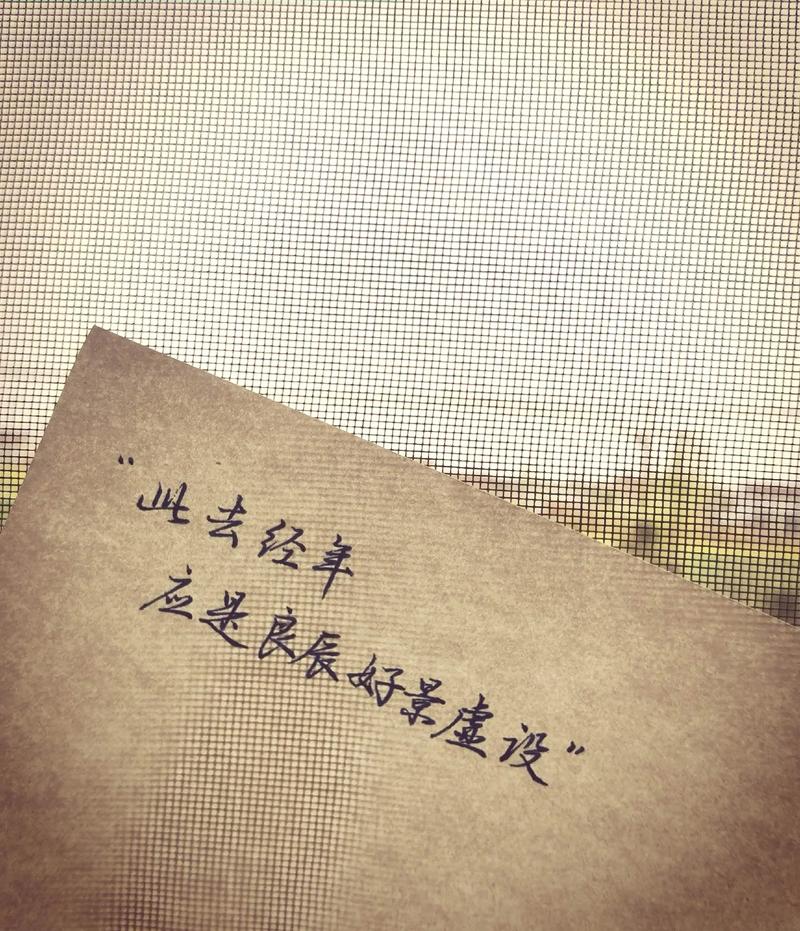 “此去经年
应是良辰好景虚设”